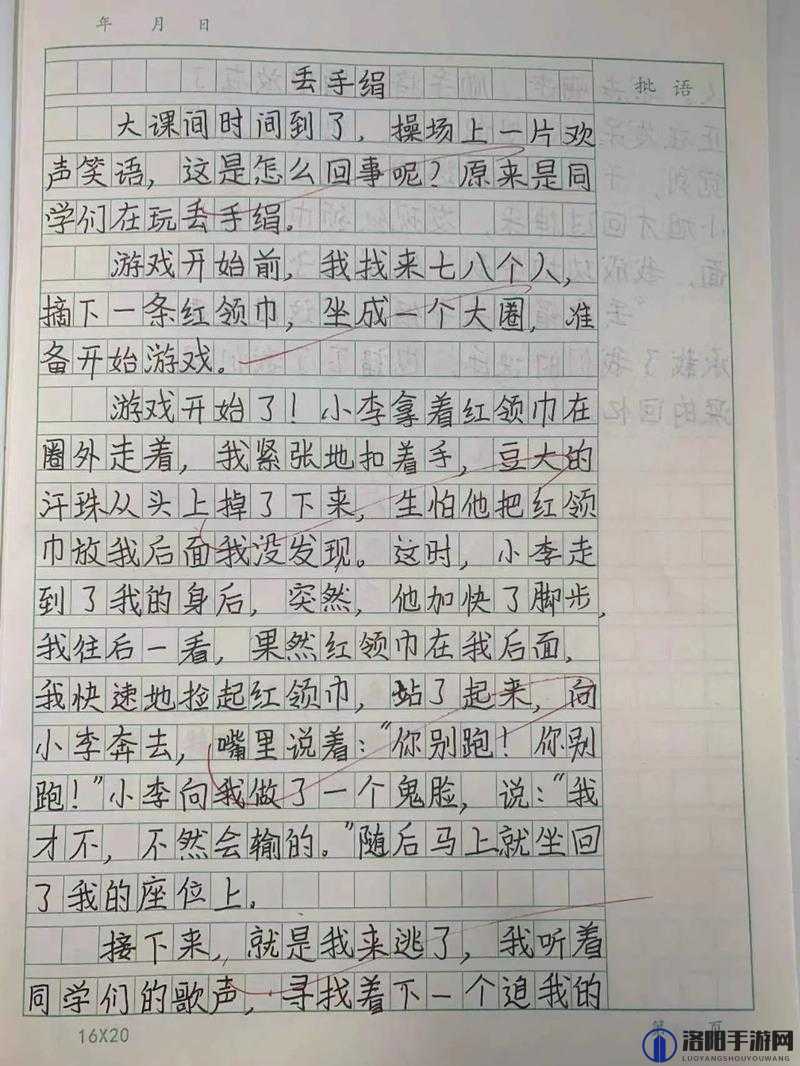 年 月 日
丢手绢
批语
大课间时间到了，操场上一片欢
声笑语，这是怎么回事呢？原来是同
学们在玩丢手绢。
游戏开始前，我找来七八个人，
摘下一条红领巾，坐成一个大圈，准
备开始游戏。
游戏开始了！小李拿着红领巾在
圈外走着，我紧张地扣着手，豆大的
汗珠从头上掉了下来，生怕他把红领
巾放我后面我没发现。这时，小李走
到了我的身后，突然，他加快了脚步，
我往后一看，果然红领巾在我后面，
我快速地捡起红领巾，站了起来，向
小李奔去，嘴里说着：“你别跑！你别
跑！”小李向我做了一个鬼脸，说：“我
才不，不然会输的。”随后马上就坐回
了我的座位上。
接下来，就是我来逃了，我听着
同学们的歌声，寻找着下一个追我的
16X20
第 页
洛阳手游网
LUOYANGSHOUYOUWANG